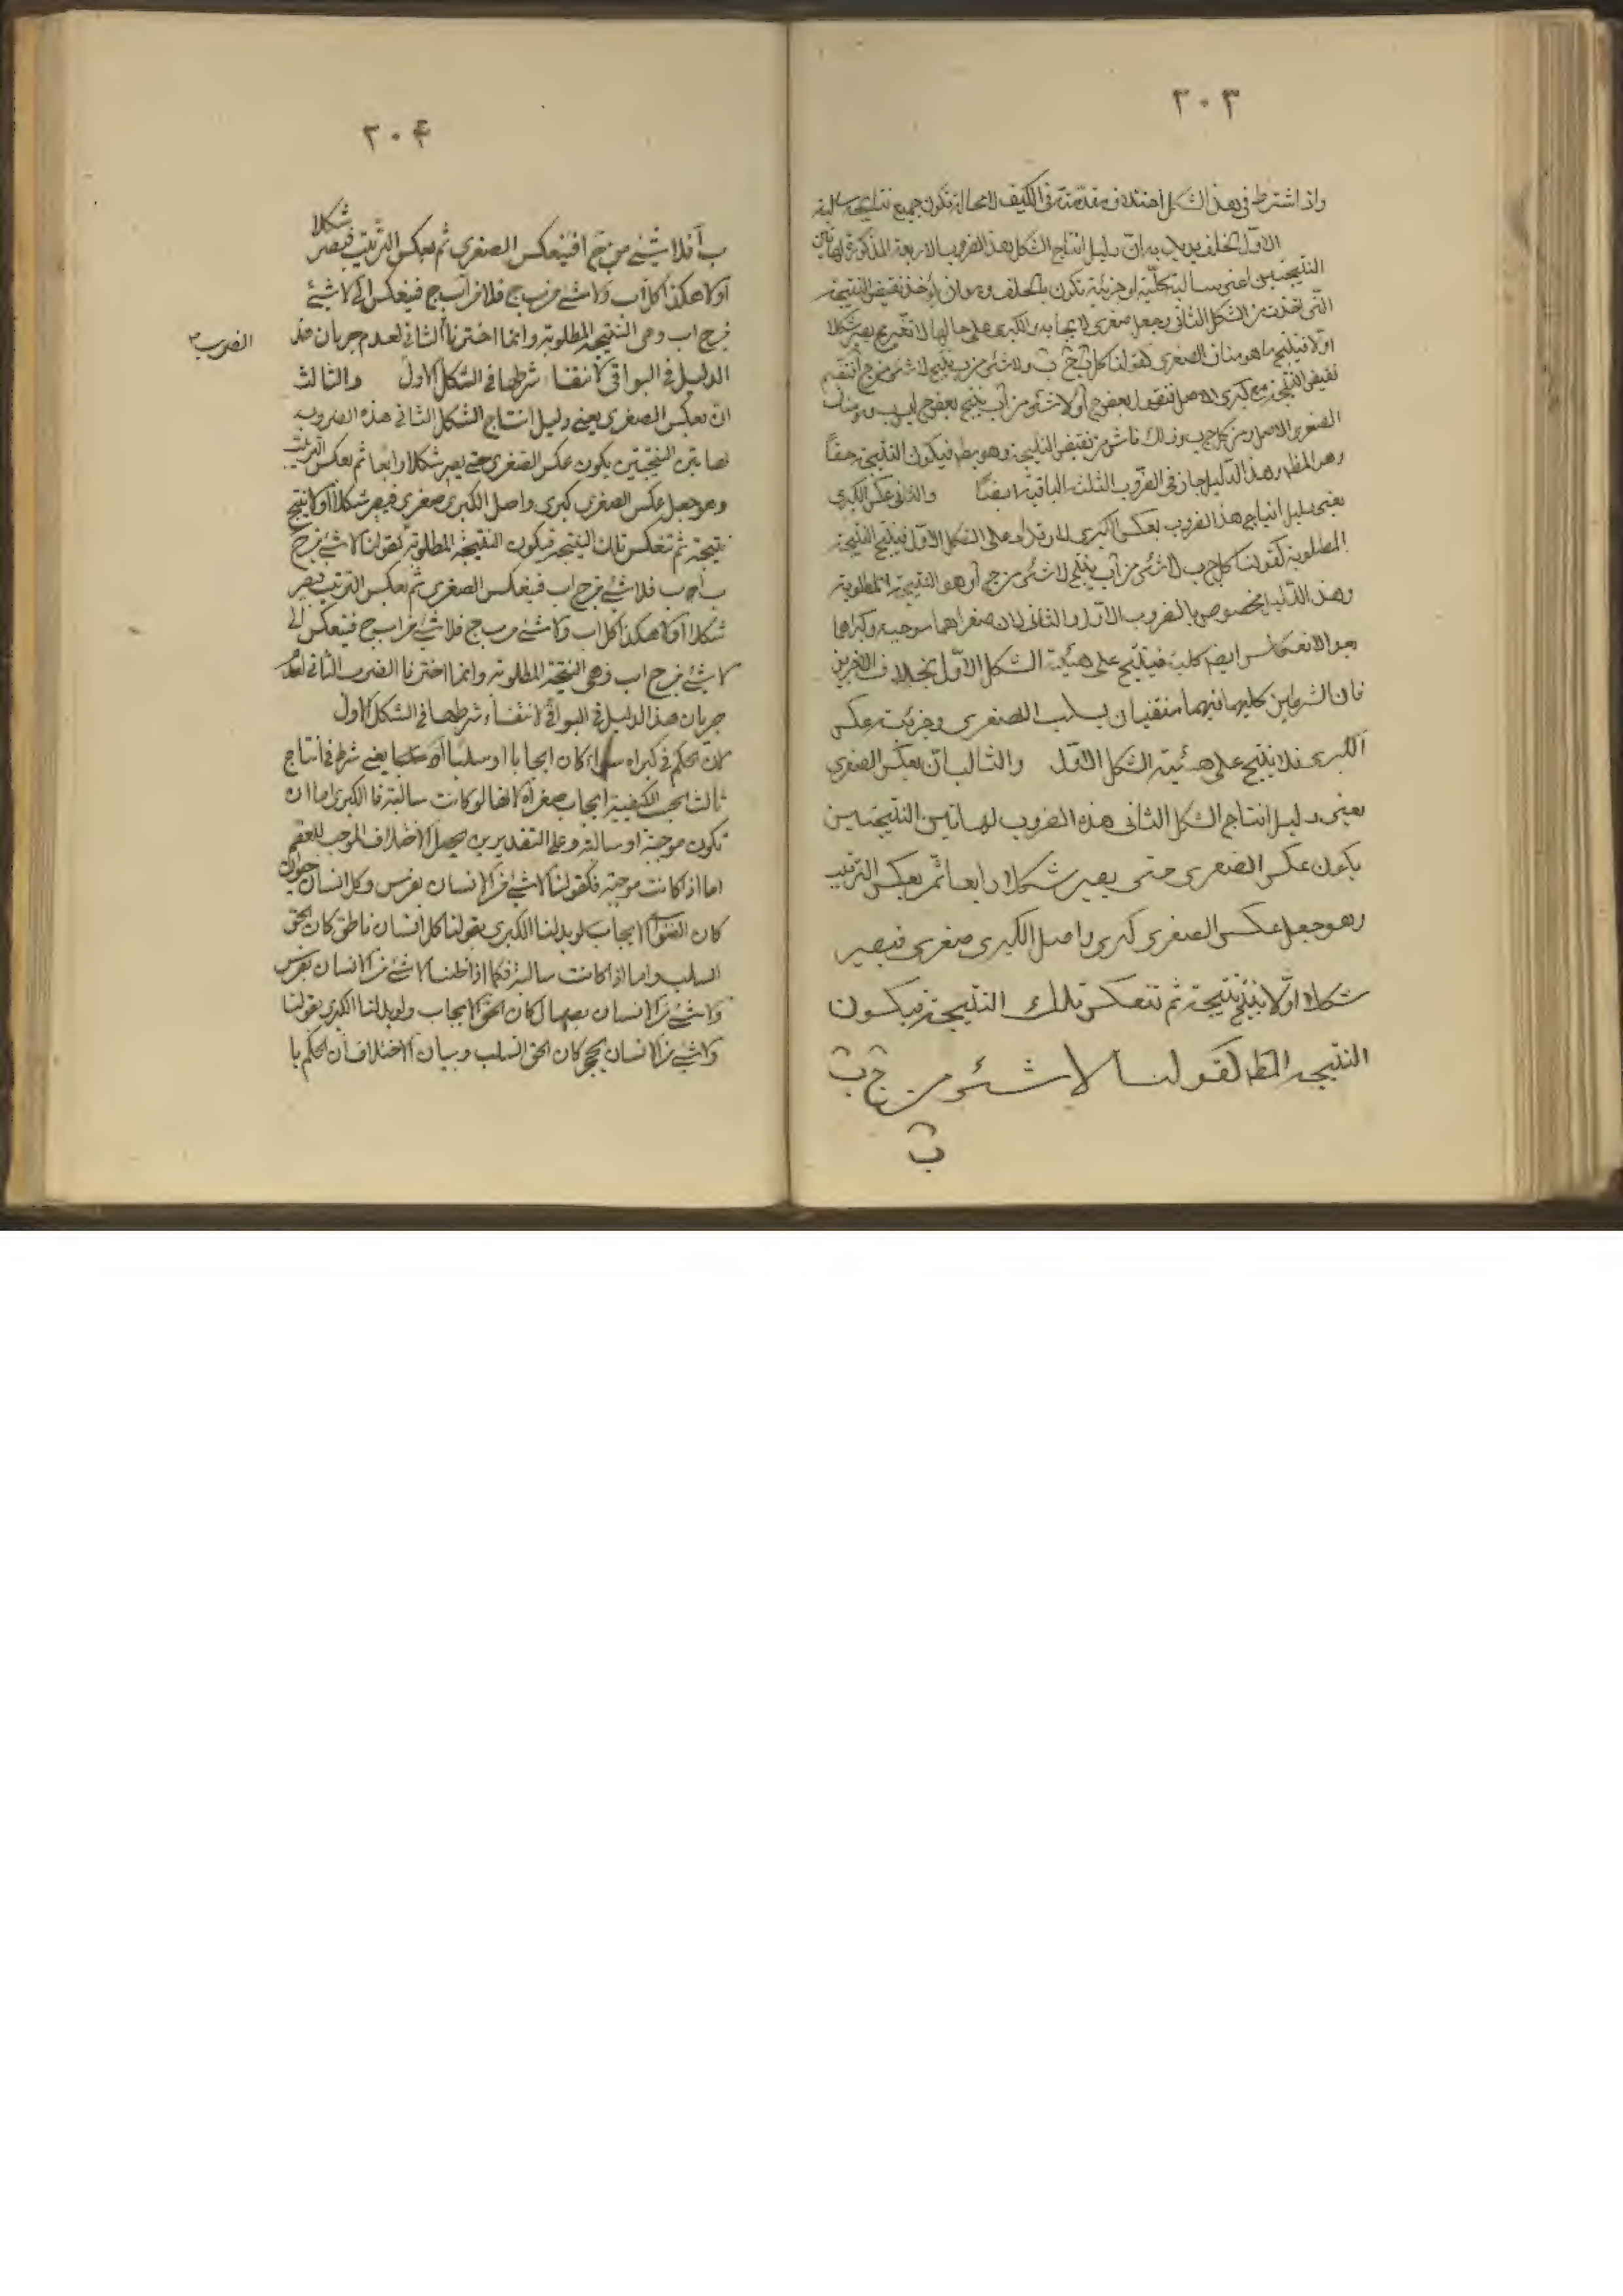 ٢٠٣
واذا اشترط في هذا الشكل اختلاف مقدمتيه في الكيف لا محالة تكون جميع نتايجه سالبة
الاول الخلف يريد به ان دليل انتاج الشكل هذا الضروب الاربعة المذكورة لهاتين
النتيجتين اعني سالبة كلية او جزئية تكون بالخلف وهو ان يؤخذ نقيض النتيجة
الثاني ويجعل صغرى لايجابه والكبرى على حالها
اولا فينتج ما هو مناف للصغرى كقولنا كل ج ب ولا شئ من
نقيض النتيجة مع كبرى الاصل فنقول بعض ج أ ولا شئ من أ ب ينتج بعض ج ليس ب
الصغرى الاصل وهي كل ج ب وذلك ناش من نقيض النتيجة وهو بط فيكون النتيجة حقا
وهو المط وهذا الدليل جاز في الضروب الثلث الباقية ايضا والثاني عكس الكبرى
يعني دليل انتاج هذا الضروب بعكس الكبرى على الشكل الاول فينتج النتيجة
المطلوبة كقولنا كل ج ب لا شئ من أ ب ينتج لا شئ من ج أ وهو النتيجة المطلوبة
وهذا الدليل مخصوص بالضروب الاول والثاني لان صغراهما موجبة وكبراهما
الانعكاس ايضا كلية فينتج على هيئة الشكل الاول بخلاف الاخرين
فان الشرطين كليهما فيهما منتفيان بسلب الصغرى وجزئية عكس
الكبرى فلا ينتج على هيئة الشكل الاول والثالث ان يعكس الصغرى
يعني دليل انتاج الشكل الثاني هذه الضروب لهاتين النتيجتين
يكون عكس الصغرى حتى يصير شكلا رابعا ثم يعكس الترتيب
وهو جعل عكس الصغرى كبرى واصل الكبرى صغرى فيصير
شكلا اولا ينتج نتيجة ثم تنعكس تلك النتيجة فيكون
النتيجة المط كقولنا لا شئ من ج ب
ب
٢٠۴
شكلا
ب أ فلا شئ من ج ا فينعكس الصغرى ثم يعكس الترتيب فيصير
اولا هكذا كل أ ب ولا شئ من ب ج فلا من أ ب ج فينعكس الى لا شئ
من ج ا ب وهي النتيجة المطلوبة وانما اخترنا الثاني لعدم جريان هذا
الضرب
الدليل في البواقي لانتفاء شرطها في الشكل الاول والثالث
ان يعكس الصغرى يعني دليل انتاج الشكل الثاني هذه الضروب
لهاتين النتيجتين يكون عكس الصغرى حتى يصير شكلا رابعا ثم يعكس الترتيب
وهو جعل عكس الصغرى كبرى واصل الكبرى صغرى فيصير شكلا اولا ينتج
نتيجة ثم تنعكس تلك النتيجة فيكون النتيجة المطلوبة كقولنا لا شئ من ج
ب ا ب فلا شئ من ج ا ب فينعكس الصغرى ثم يعكس الترتيب فيصير
شكلا اولا هكذا كل ا ب ولا شئ من ب ج فلا شئ من ا ب ج فينعكس الى
لا شئ من ج ا ب وهي النتيجة المطلوبة وانما اخترنا الضرب الثاني لعدم
جريان هذا الدليل في البواقي لانتفاء شرطها في الشكل الاول
لان الحكم في كبراه سواء كان ايجابا او سلبا يعني شرط في انتاج
ثالث بحسب الكيفية ايجاب صغراه لانها لو كانت سالبة فا الكبرى اما ان
تكون موجبة او سالبة وعلى التقديرين يحصل الاختلاف الموجب للعقم
اما اذا كانت موجبة فكقولنا لا شئ من الانسان بفرس وكل انسان حيوان
كان الايجاب لو بدلنا الكبرى بقولنا كل انسان ناطق كان الحق
السلب واما اذا كانت سالبة فكما اذا قلنا لا شئ من الانسان بفرس
ولا شئ من الانسان بصهال كان الحق الايجاب ولو بدلنا الكبرى بقولنا
ولا شئ من الانسان بحجر كان الحق السلب وبيان الاختلاف ان الحكم با